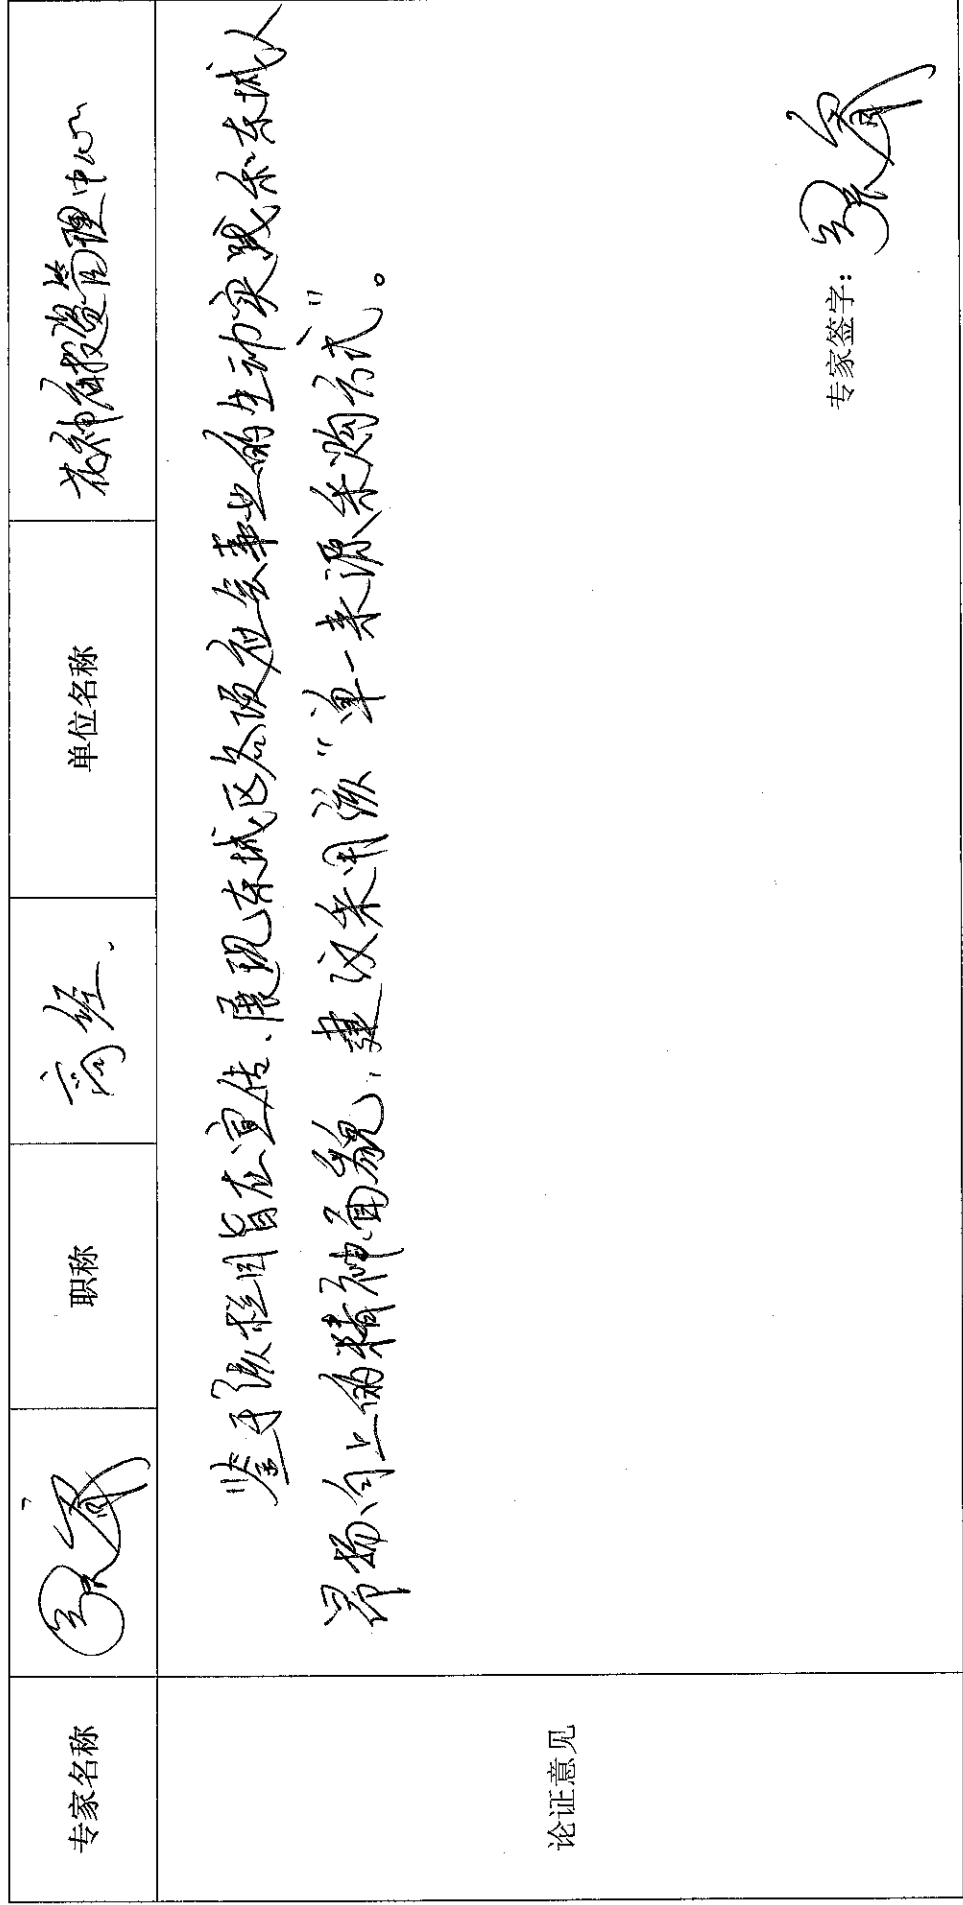 专家名称 职称 高经. 单位名称 花神庙投资管理中心
论证意见
鉴于该栏目旨在宣传、展现东城区各项社会事业的生动实践和东城人
昂扬向上的精神面貌,建议采用该“单一来源采购方式”。
专家签字: